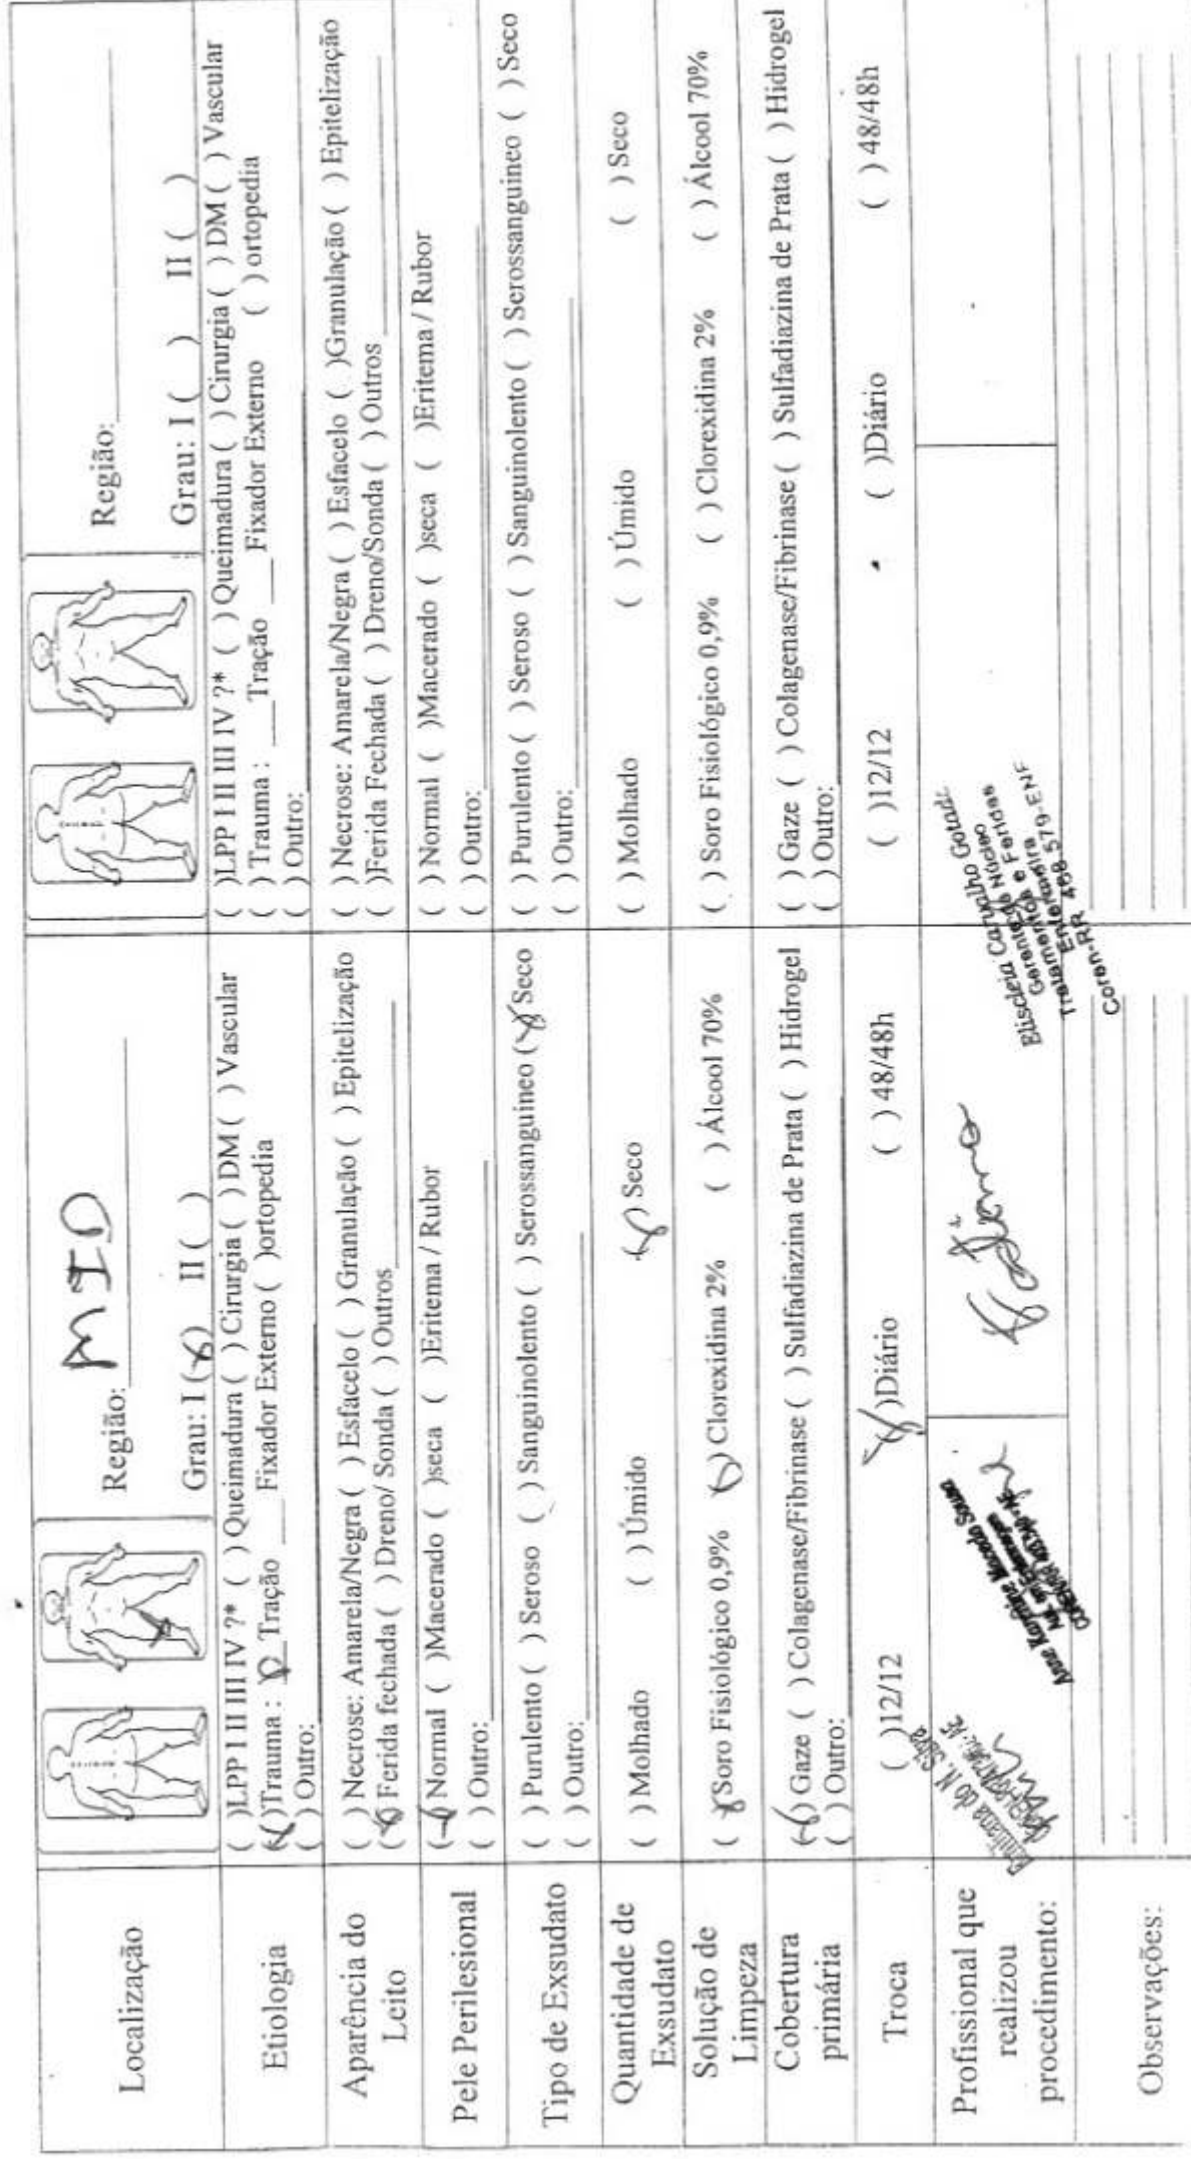 Localização
Região: MID
Grau: I (x) II ( )
Região:
Grau: I ( ) II ( )
Etiologia
( )LPP I II III IV ?* ( ) Queimadura ( ) Cirurgia ( ) DM ( ) Vascular
(x)Trauma : Tração ___Fixador Externo ( )ortopedia
( ) Outro:
( )LPP I II III IV ?* ( ) Queimadura ( ) Cirurgia ( ) DM ( ) Vascular
( ) Trauma : ___Tração ___Fixador Externo ( ) ortopedia
( ) Outro:
Aparência do
Leito
( ) Necrose: Amarela/Negra ( ) Esfacelo ( ) Granulação ( ) Epitelização
(x) Ferida fechada ( ) Dreno/ Sonda ( ) Outros
( ) Necrose: Amarela/Negra ( ) Esfacelo ( )Granulação ( ) Epitelização
( )Ferida Fechada ( ) Dreno/Sonda ( ) Outros
Pele Perilesional
(x) Normal ( )Macerado ( )seca ( )Eritema / Rubor
( ) Outro:
( ) Normal ( )Macerado ( )seca ( )Eritema / Rubor
( ) Outro:
Tipo de Exsudato
( ) Purulento ( ) Seroso ( ) Sanguinolento ( ) Serossanguineo (x) Seco
( ) Outro:
( ) Purulento ( ) Seroso ( ) Sanguinolento ( ) Serossanguineo ( ) Seco
( ) Outro:
Quantidade de
Exsudato
( ) Molhado ( ) Úmido (x) Seco
( ) Molhado ( ) Úmido ( ) Seco
Solução de
Limpeza
(x) Soro Fisiológico 0,9% (x) Clorexidina 2% ( ) Álcool 70%
( ) Soro Fisiológico 0,9% ( ) Clorexidina 2% ( ) Álcool 70%
Cobertura
primária
(x) Gaze ( ) Colagenase/Fibrinase ( ) Sulfadiazina de Prata ( ) Hidrogel
( ) Outro:
( ) Gaze ( ) Colagenase/Fibrinase ( ) Sulfadiazina de Prata ( ) Hidrogel
( ) Outro:
Troca
( )12/12 (x)Diário ( ) 48/48h
( )12/12 ( )Diário ( ) 48/48h
Profissional que
realizou
procedimento:
do N. Silva
Anne Karoline Macedo Sousa
Eliscleia Carvalho Gotadi
Gerente do Núcleo
Tratamento e Feridas
Enfermeira
Coren-RR 468.579-ENF
Observações: